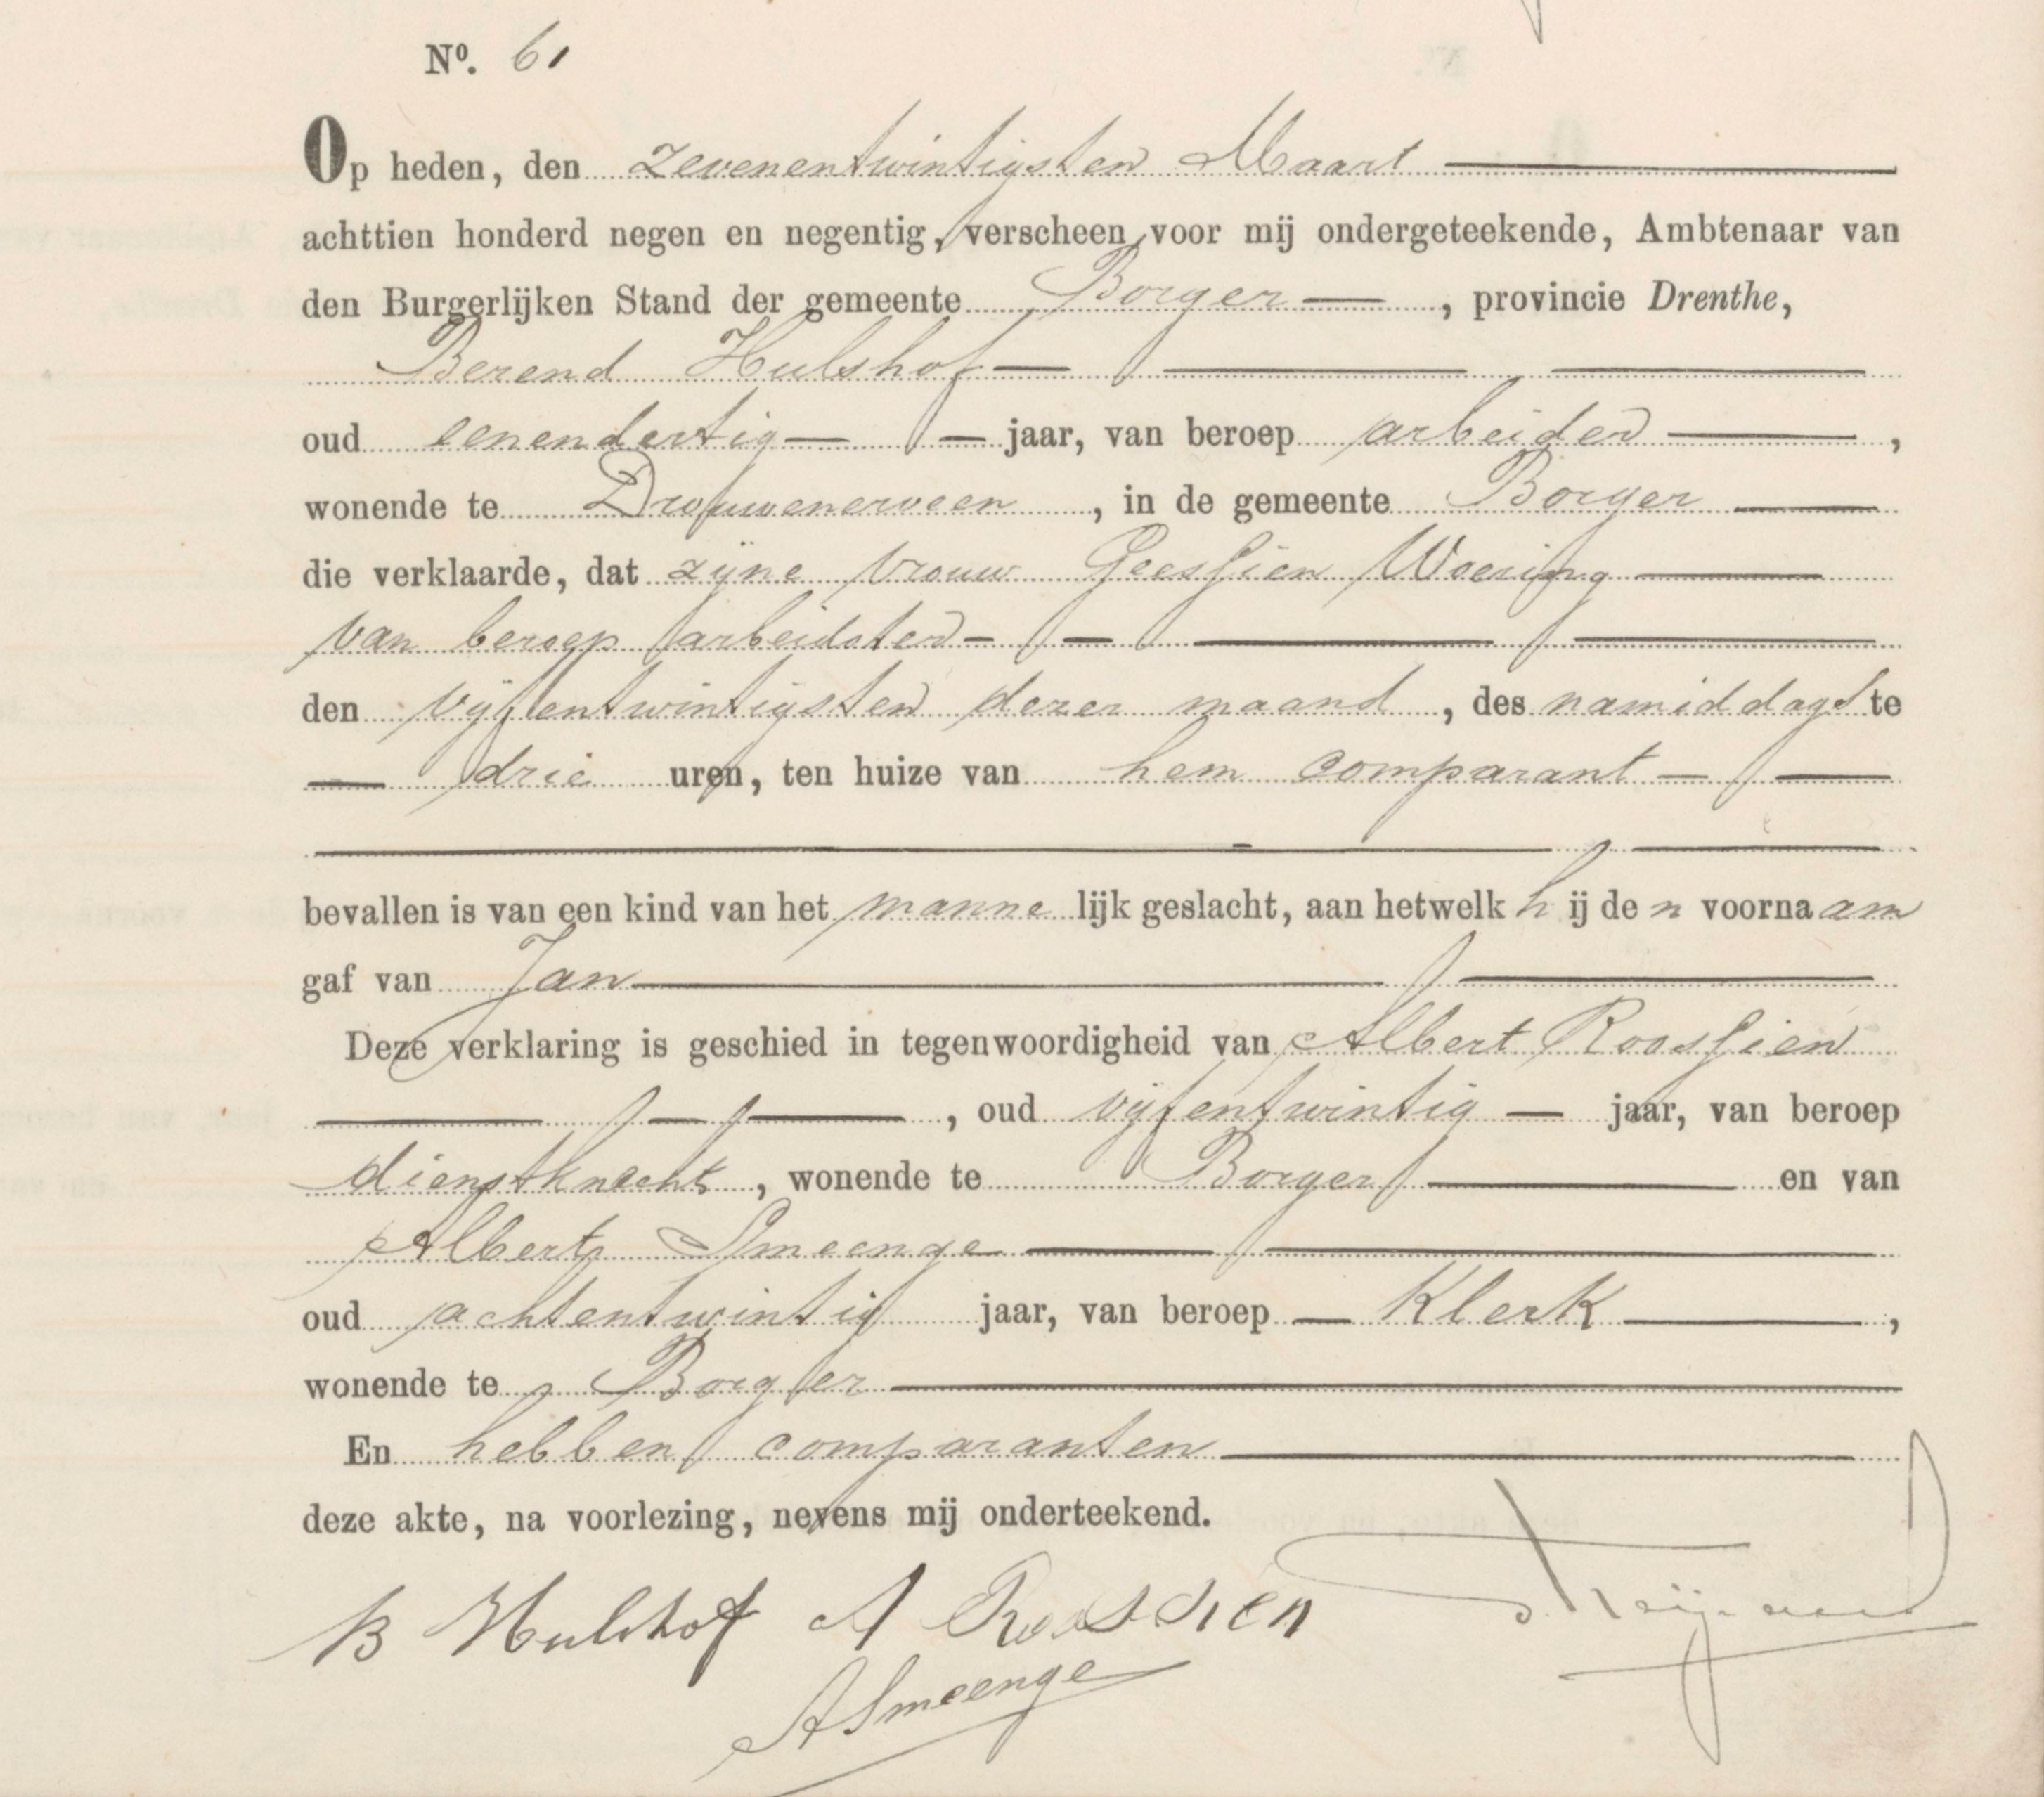 Nº. 61
Op heden, den zevenentwintigsten Maart
achttien honderd negen en negentig, verscheen voor mij ondergeteekende, Ambtenaar van
den Burgerlijken Stand der gemeente Borger, provincie Drenthe,
Berend Hulshof
oud eenendertig jaar, van beroep arbeider,
wonende te Drouwenerveen, in de gemeente Borger
die verklaarde, dat zijne vrouw Geessien Woering
van beroep arbeidster
den vijfentwintigsten dezer maand, des namiddags te
drie uren, ten huize van hem comparant
bevallen is van een kind van het mannelijk geslacht, aan hetwelk hij den voornaam
gaf van Jan
Deze verklaring is geschied in tegenwoordigheid van Albert Roossien
, oud vijfentwintig jaar, van beroep
dienstknecht, wonende te Borger en van
Albert Smeenge
oud achtentwintig jaar, van beroep Klerk,
wonende te Borger
En hebben comparanten
deze akte, na voorlezing, nevens mij onderteekend.
B Hulshof A Roossien
ASmeenge